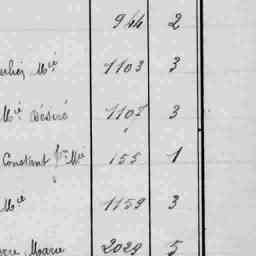 944 2
Mⁱᵉ 1103 3
Mⁱᵉ Désiré 1105 3
Constant Mⁱᵉ 155 1
Mⁱᵉ 1159 3
Marie 2029 5